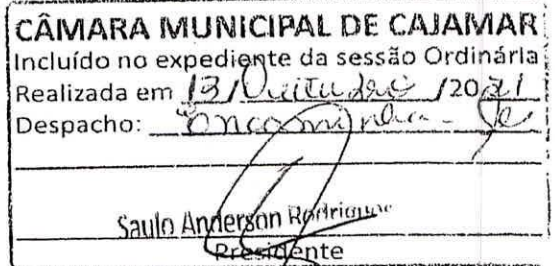 CÂMARA MUNICIPAL DE CAJAMAR
Incluído no expediente da sessão Ordinária
Realizada em 13 / Outubro /2021
Despacho: Encaminha-se
Saulo Anderson Rodrigues
Presidente